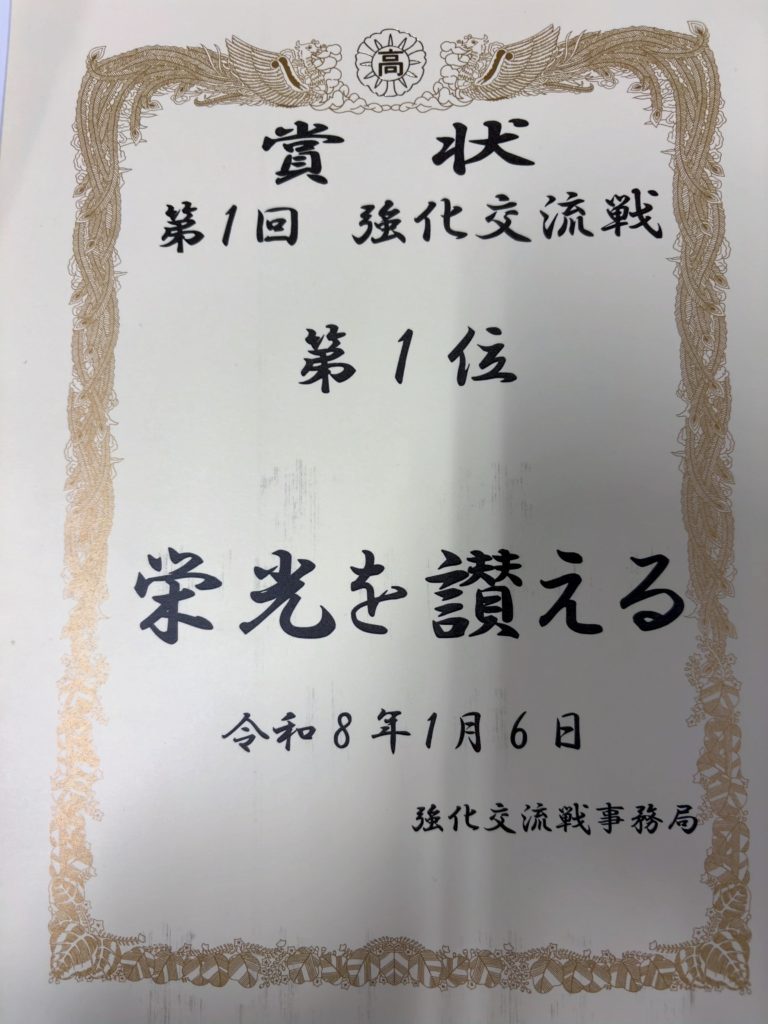 高
賞 状
第1回 強化交流戦
第1位
栄光を讃える
令和8年1月6日
強化交流戦事務局